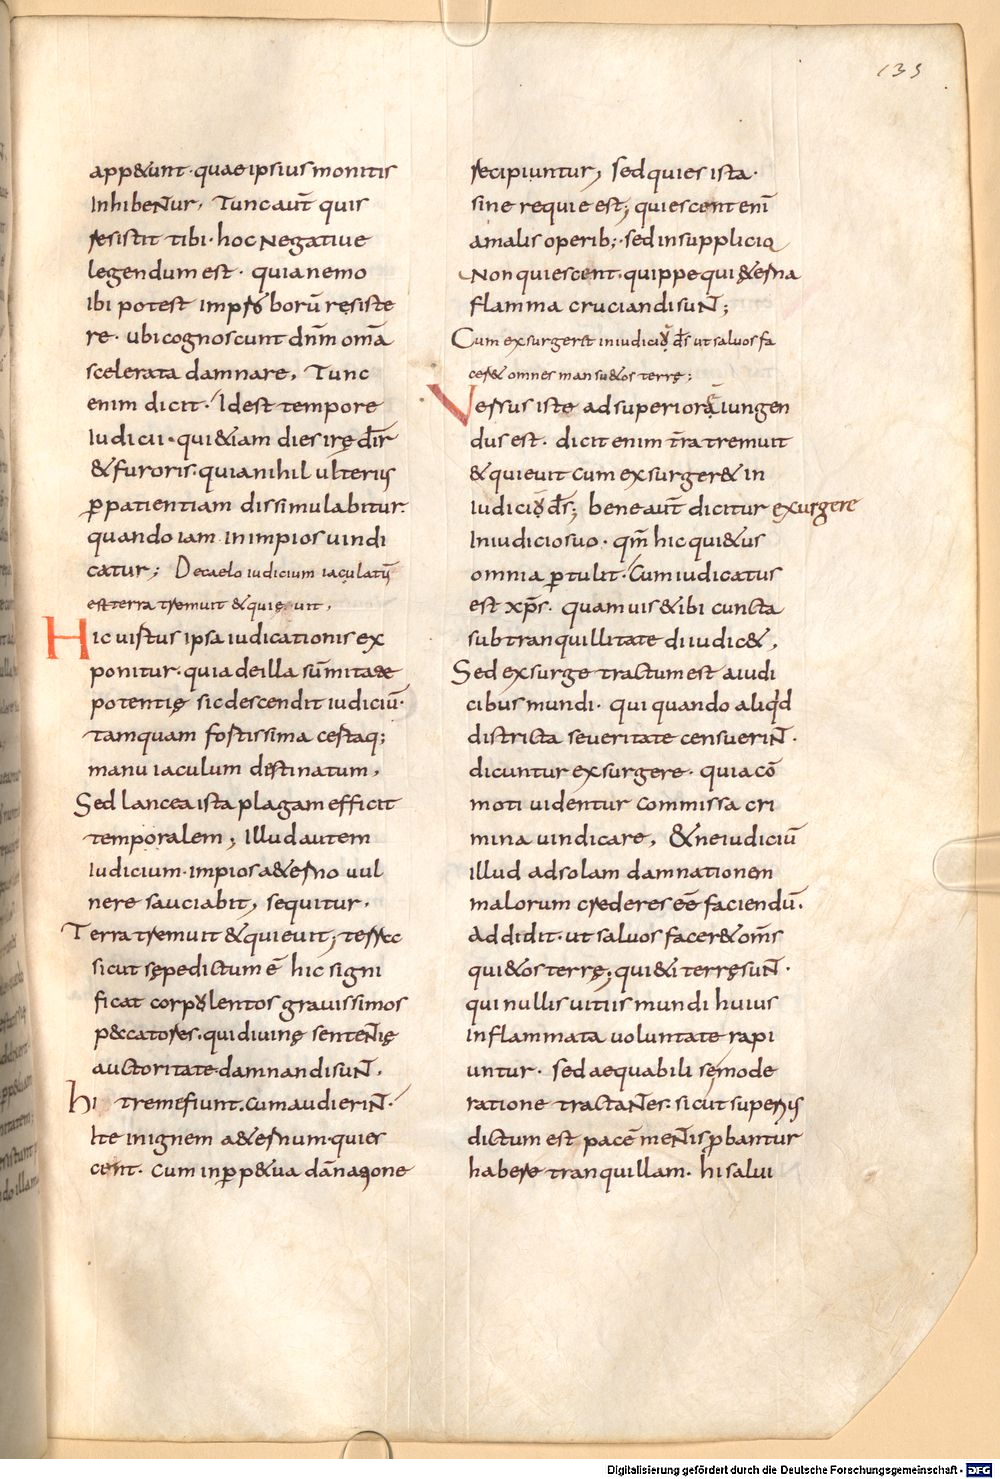 135
app&unt· quae ipsius monitis
Inhibentur, Tunc aut̄ quis
resistit tibi· hoc negative
legendum est· quia nemo
ibi potest improborū resiste
re· ubi cognoscunt dn̄m omā
scelerata damnare, Tunc
enim dicit· Id est tempore
Iudicii· qui &iam dies irę dīr
& furoris· quia nihil ulterius
ꝑ patientiam dissimulabitur·
quando iam in impios uindi
catur; De caelo iudicium iaculatū
est terra tremuit & quieuit,
Hic uirtus ipsa iudicationis ex
ponitur· quia de illa sūmitate
potentię sic descendit iudiciū·
tamquam fortissima certaq;
manu iaculum destinatum,
Sed lancea ista plagam efficit
temporalem, Illud autem
Iudicium· impios a&erno uul
nere sauciabit, sequitur·
Terra tremuit & quieuit; terra
sicut sępe dictum ē hic signi
ficat corpolentos grauissimos
p&catores· qui diuinę sententię
auctoritate damnandi sunt,
hi tremefiunt· cum audierint·
Ite in ignem a&ernum· quies
cent· cum in ꝑp&ua dānatione
recipiuntur, sed quies ista·
sine requie est; quiescent enī
a malis operib;· sed in supplicio
non quiescent· quippe qui &erna
flamma cruciandi sunt;
Cum exsurger& in iudicio d̄s ut saluos fa
cer& omnes mansu&os terrę;
Versus iste ad superiora iungen
dus est· dicit enim tr̄a tremuit
& quieuit cum exsurger& in
Iudicio d̄s; bene aut̄ dicitur exurgere
In iudicio suo· qm̄ hic qui&us
omnia ꝑtulit· Cum iudicatus
est xp̄s· quamuis & ibi cuncta
sub tranquillitate diiudic&,
Sed exsurge tractum est a iudi
cibus mundi· qui quando aliqd
districta seueritate censuerint·
dicuntur exsurgere· quia cō
moti uidentur commissa cri
mina uindicare, & ne iudiciū
illud ad solam damnationem
malorum crederes eē faciendū·
Addidit· ut saluos facer& om̄s
qui&os terrę; qui&i terrę sunt·
qui nullis uitiis mundi huius
inflammata uoluntate rapi
untur· sed aequabili se mode
ratione tractantes· sicut superius
dictum est pacē mentis ꝓbantur
habere tranquillam· hi salui
Digitalisierung gefördert durch die Deutsche Forschungsgemeinschaft - DFG